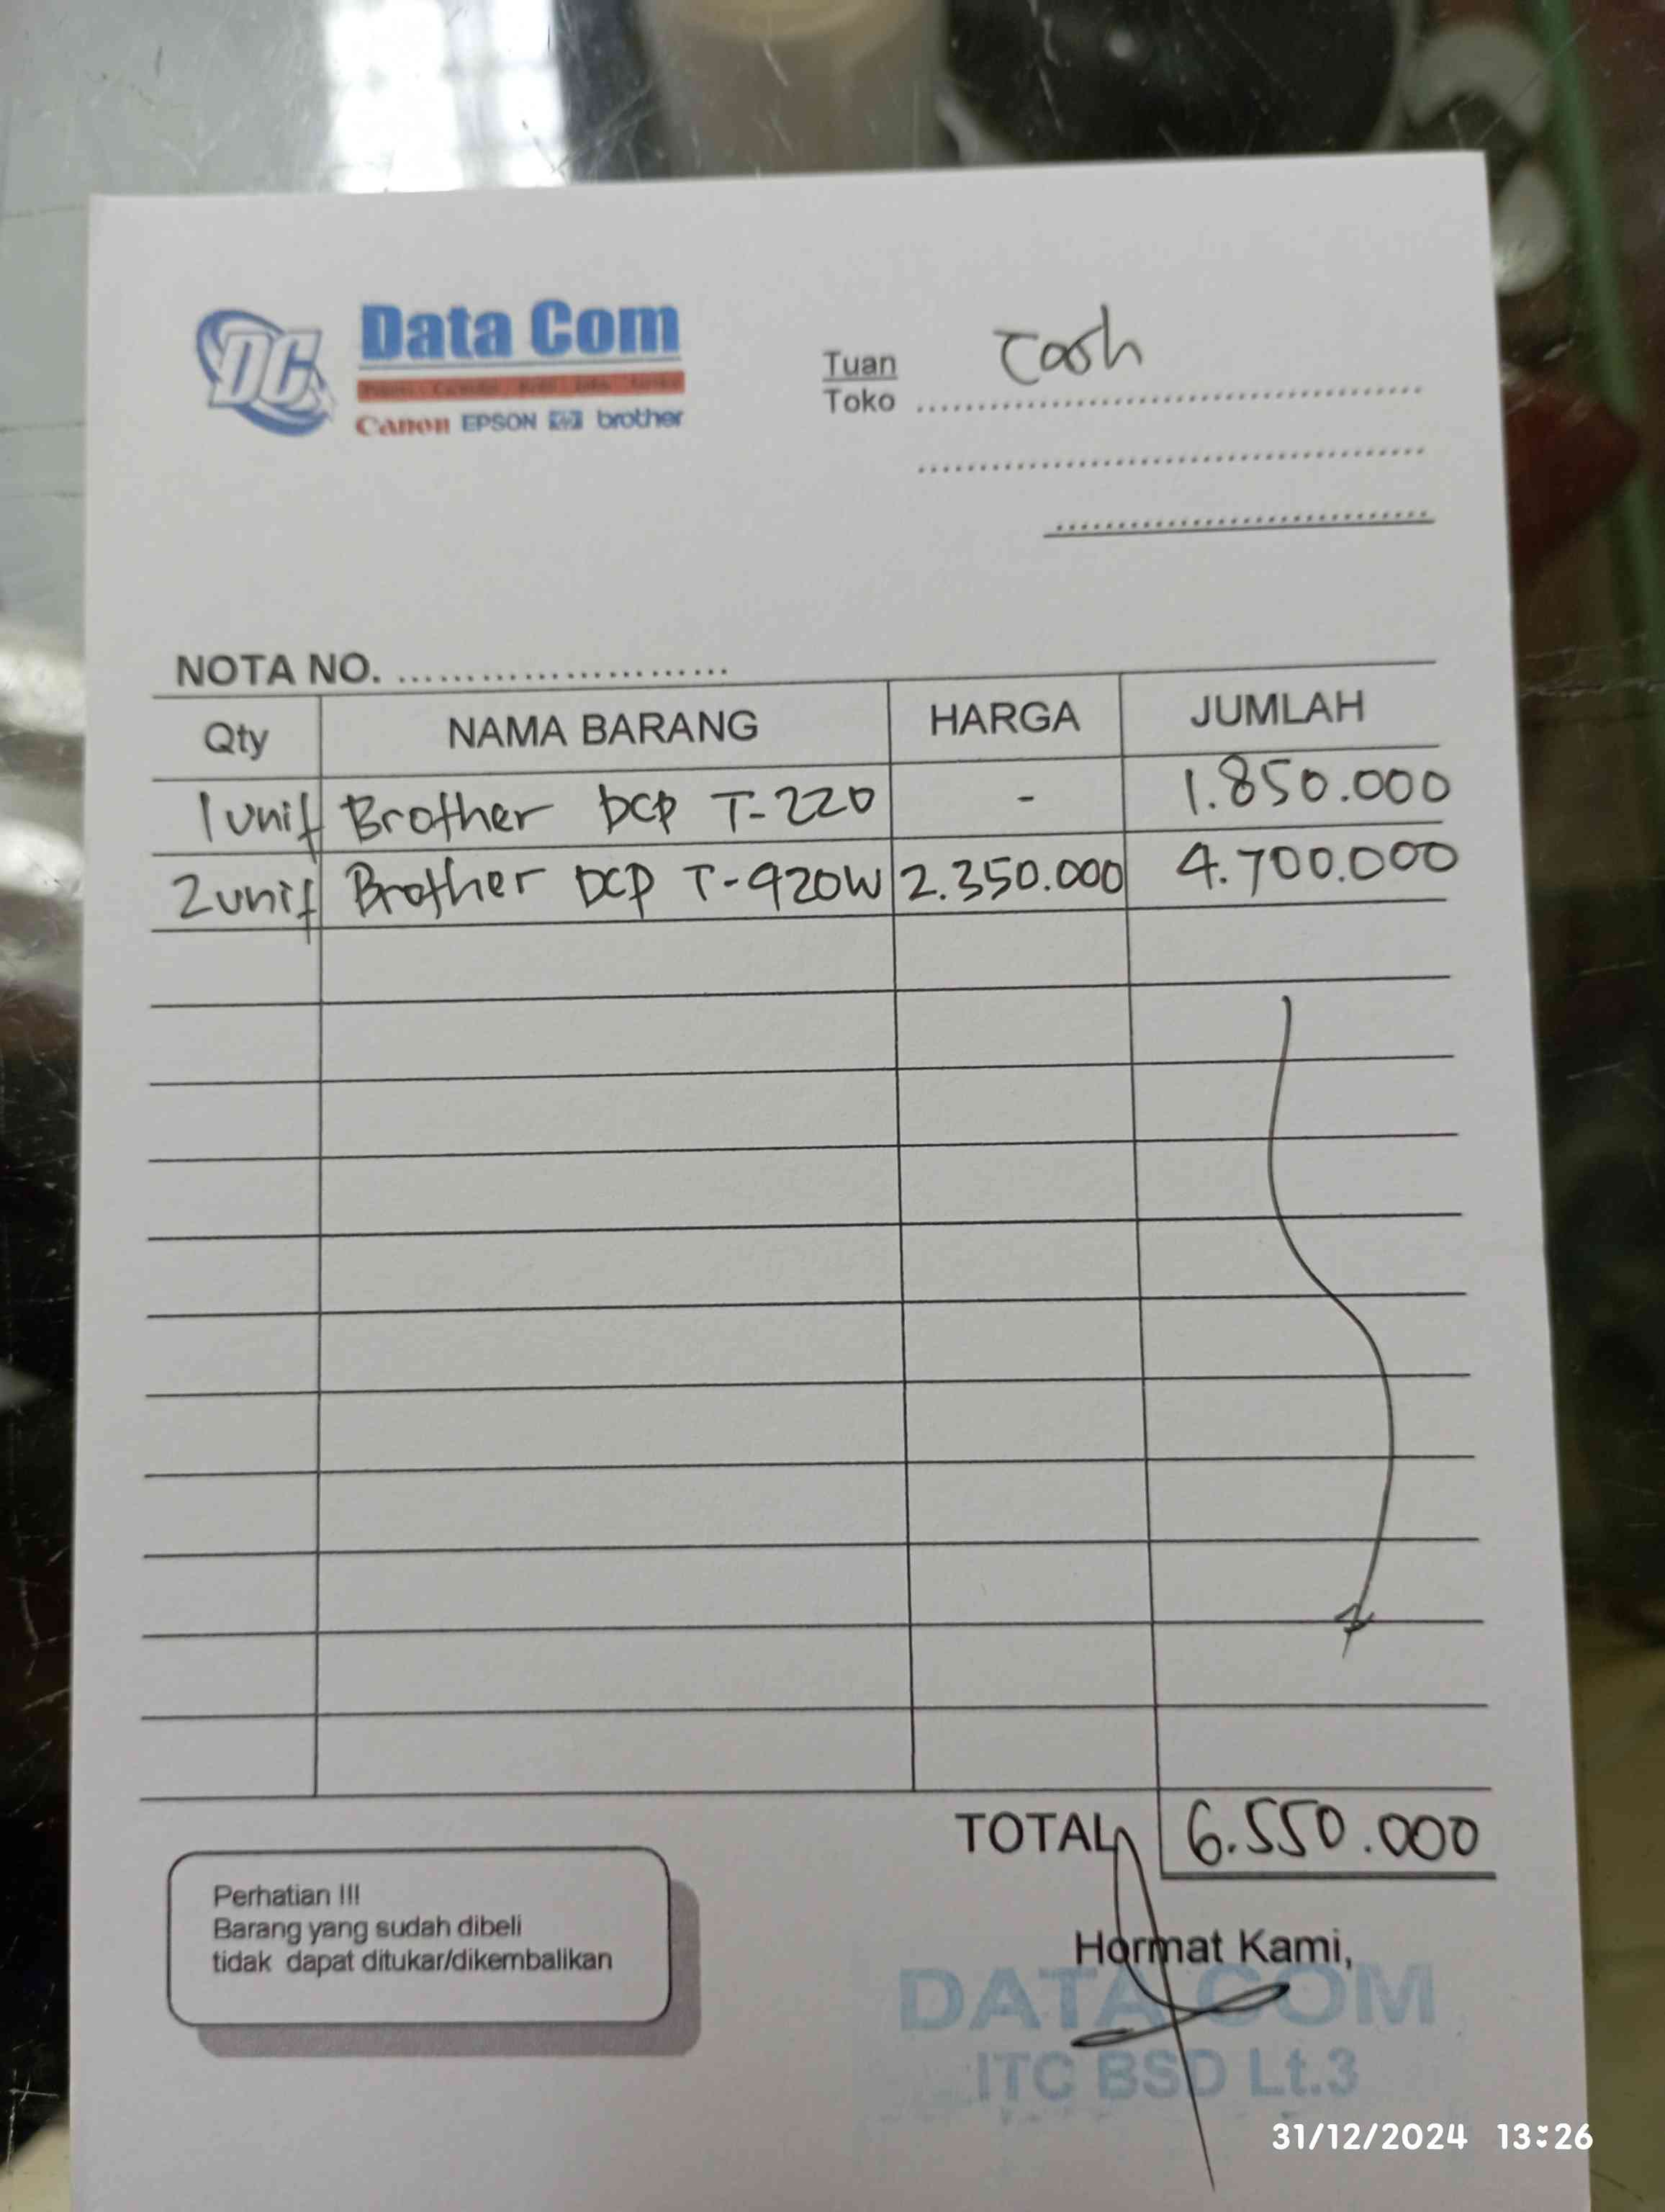 DC
Data Com
Canon EPSON hp brother
Tuan Cash
Toko
NOTA NO. ........................
Qty NAMA BARANG HARGA JUMLAH
1 unit Brother DCP T-220 - 1.850.000
2 unit Brother DCP T-420W 2.350.000 4.700.000
TOTAL 6.550.000
Perhatian !!!
Barang yang sudah dibeli
tidak dapat ditukar/dikembalikan
Hormat Kami,
DATA COM
ITC BSD Lt.3
31/12/2024 13:26